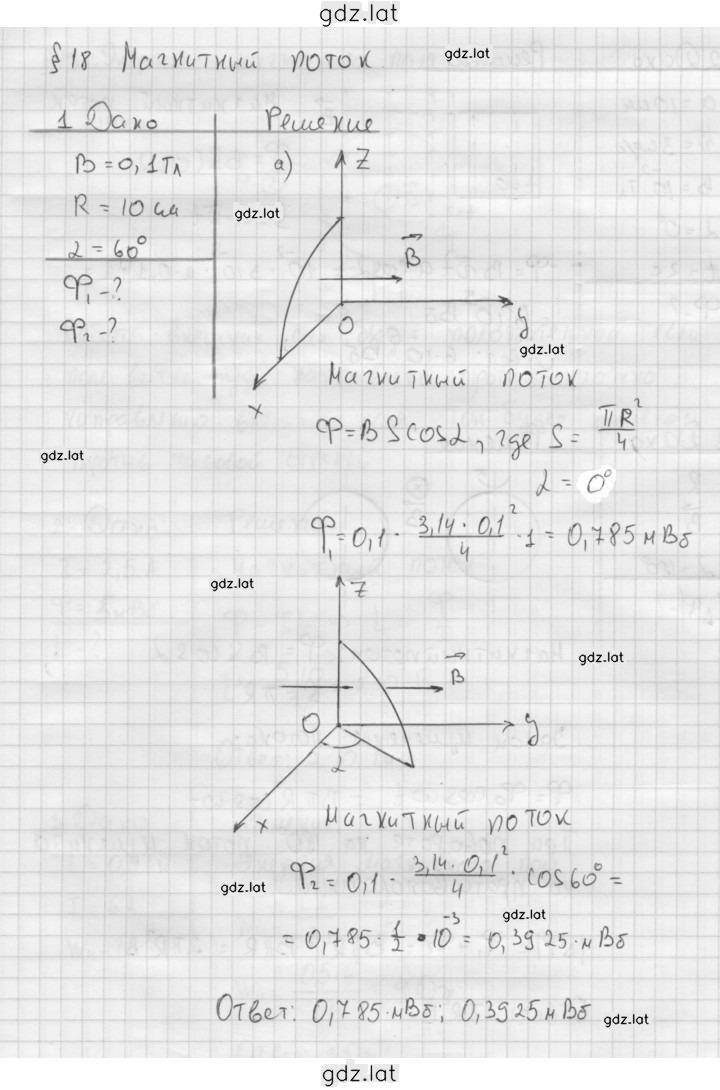 gdz.lat
§ 18 Магнитный поток
gdz.lat
1 Дано
Решение
B = 0,1 Тл
R = 10 см
α = 60°
Φ₁ - ?
Φ₂ - ?
gdz.lat
а)
Z
B
O
y
x
gdz.lat
Магнитный поток
Φ = B S cos α, где S = πR²/4
gdz.lat
α = 0°
Φ₁ = 0,1 · 3,14 · 0,1²/4 · 1 = 0,785 мВб
gdz.lat
Z
gdz.lat
B
O
y
α
x
Магнитный поток
Φ₂ = 0,1 · 3,14 · 0,1²/4 · cos 60° =
gdz.lat
gdz.lat
= 0,785 · 1/2 · 10⁻³ = 0,3925 · мВб
Ответ: 0,785 · мВб; 0,3925 мВб
gdz.lat
gdz.lat